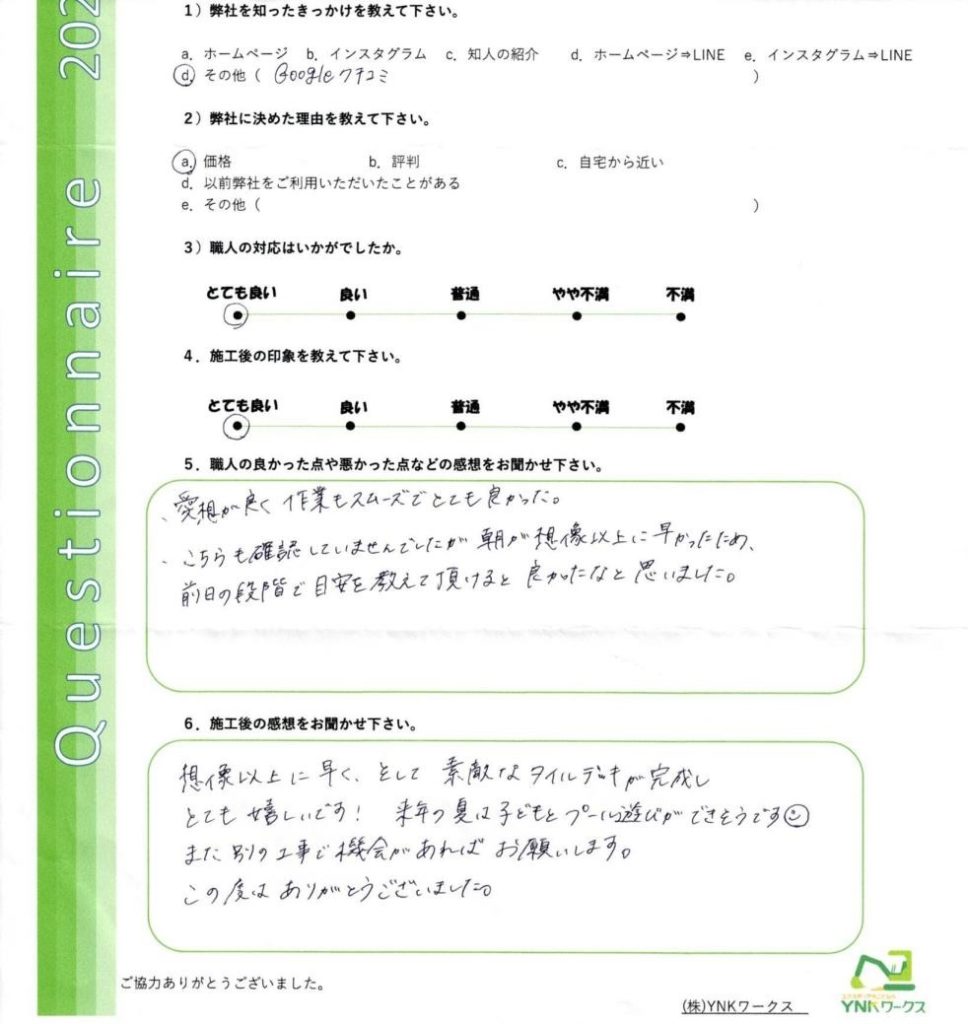 Questionnaire 202
1）弊社を知ったきっかけを教えて下さい。
a. ホームページ b. インスタグラム c. 知人の紹介 d. ホームページ⇒LINE e. インスタグラム⇒LINE
d. その他（ Googleクチコミ ）
2）弊社に決めた理由を教えて下さい。
a. 価格 b. 評判 c. 自宅から近い
d. 以前弊社をご利用いただいたことがある
e. その他（ ）
3）職人の対応はいかがでしたか。
とても良い 良い 普通 やや不満 不満
4．施工後の印象を教えて下さい。
とても良い 良い 普通 やや不満 不満
5．職人の良かった点や悪かった点などの感想をお聞かせ下さい。
、愛想が良く 作業もスムーズでとても良かった。
、こちらも確認していませんでしたが 朝が想像以上に早かったため、
前日の段階で目安を教えて頂けると 良かったなと思いました。
6．施工後の感想をお聞かせ下さい。
想像以上に早く、そして 素敵なタイルデッキが完成し
とても嬉しいです！ 来年の夏は子どもとプール遊びができそうです☺
また別の工事で機会があれば お願いします。
この度は ありがとうございました。
ご協力ありがとうございました。
(株)YNKワークス
YNKワークス